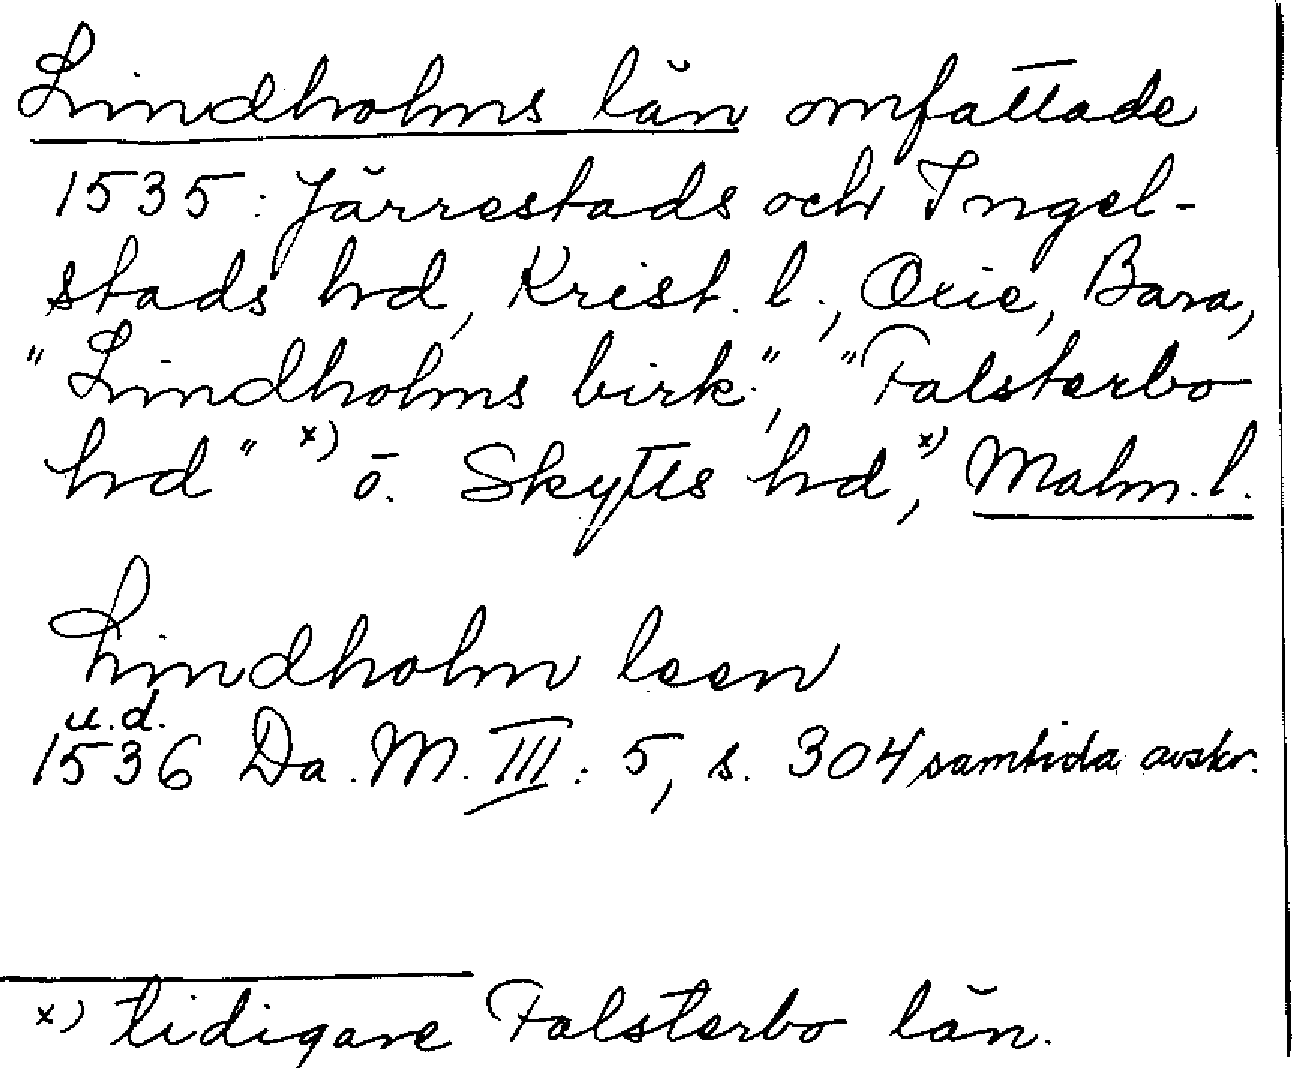 Lindholms län omfattade
1535: Järrestads och Ingel-
stads hd, Krist. l., Oxie, Bara,
"Lindholms birk", "Falsterbo
hd" x) o. Skytts hd, x) Malm. l.
Lindholm leen
u.d.
1536 Da. M. III: 5, s. 304 samtida avskr.
x) tidigare Falsterbo län.